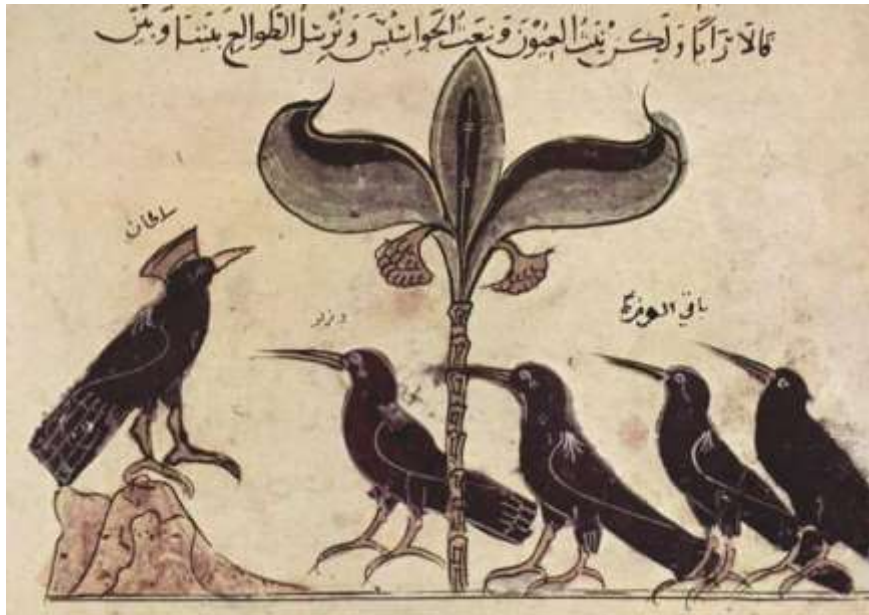 قالا رَايًا وَلكِن نبُثُّ العُيُونَ وَنبعَثُ الجَواسِيسَ وَنُرسِلُ الطَّوالِعَ بَيننَا وَبَيْنَ
سلطان
باقي الوزرة
وزير